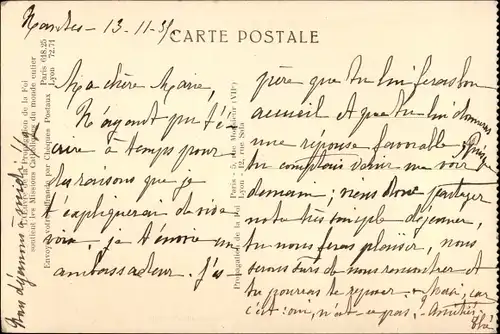 Nantes - 13-11-35
CARTE POSTALE
Ma chère Marie,
N'ayant pu t'é
crire à temps pour
les raisons que je
t'expliquerai de vive
voix, je t'envoie un
ambassadeur. J'es
père que tu lui feras bon
accueil et que tu lui donneras
une réponse favorable. Puis
tu comptais venir me voir
demain; viens donc partager
notre très simple déjeuner,
tu nous feras plaisir, nous
serons sûrs de nous rencontrer et
tu pourras te reposer. car
c'est: oui, n'est-ce pas? Amitiés
Nous déjeunons à midi!!
la Propagation de la Foi
soutient les Missions Catholiques du monde entier
Envoyez votre offrande par Chèques Postaux Paris 618.25
Lyon 72.71
Propagation de la Foi Paris - 5, rue Monsieur (VII°)
Lyon - 12, rue Sala